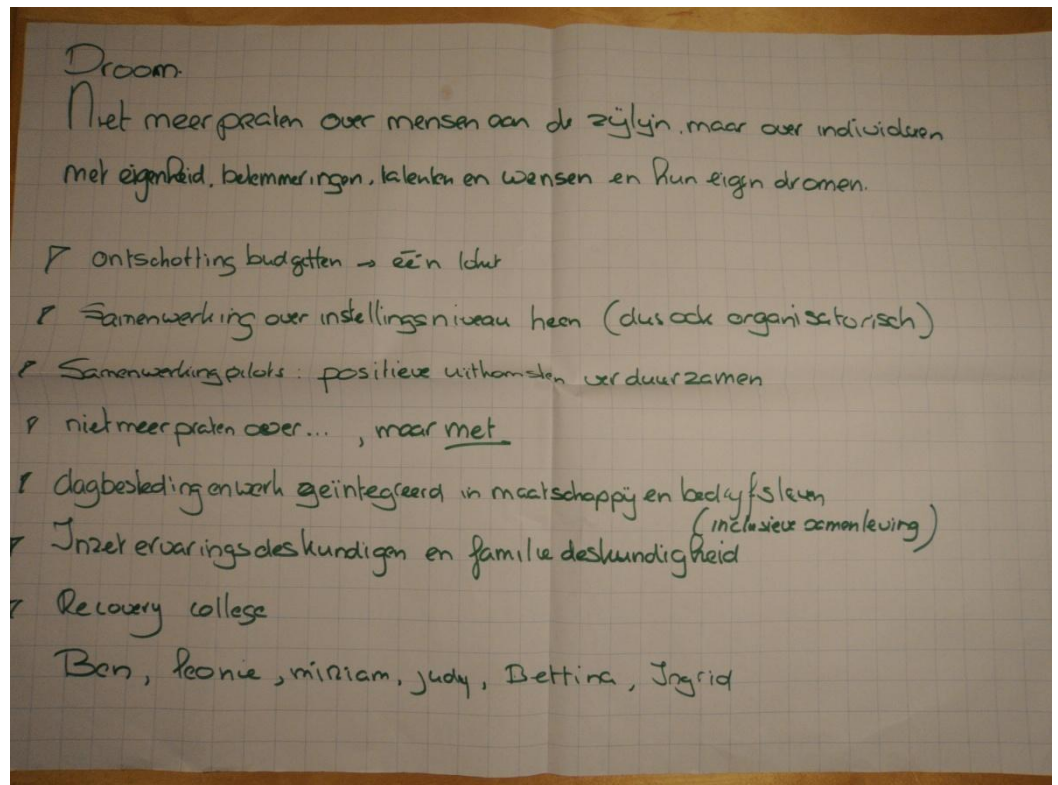 Droom.
Niet meer praten over mensen aan de zijlijn, maar over individuen
met eigenheid, belemmeringen, talenten en wensen en hun eigen dromen.
ontschotting budgetten → één loket
Samenwerking over instellingsniveau heen (dus ook organisatorisch)
Samenwerking pilots: positieve uitkomsten verduurzamen
niet meer praten over..., maar met
dagbesteding en werk geïntegreerd in maatschappij en bedrijfsleven
(inclusieve samenleving)
Inzet ervaringsdeskundigen en familiedeskundigheid
Recovery college
Ben, leonie, miriam, judy, Bettina, Ingrid